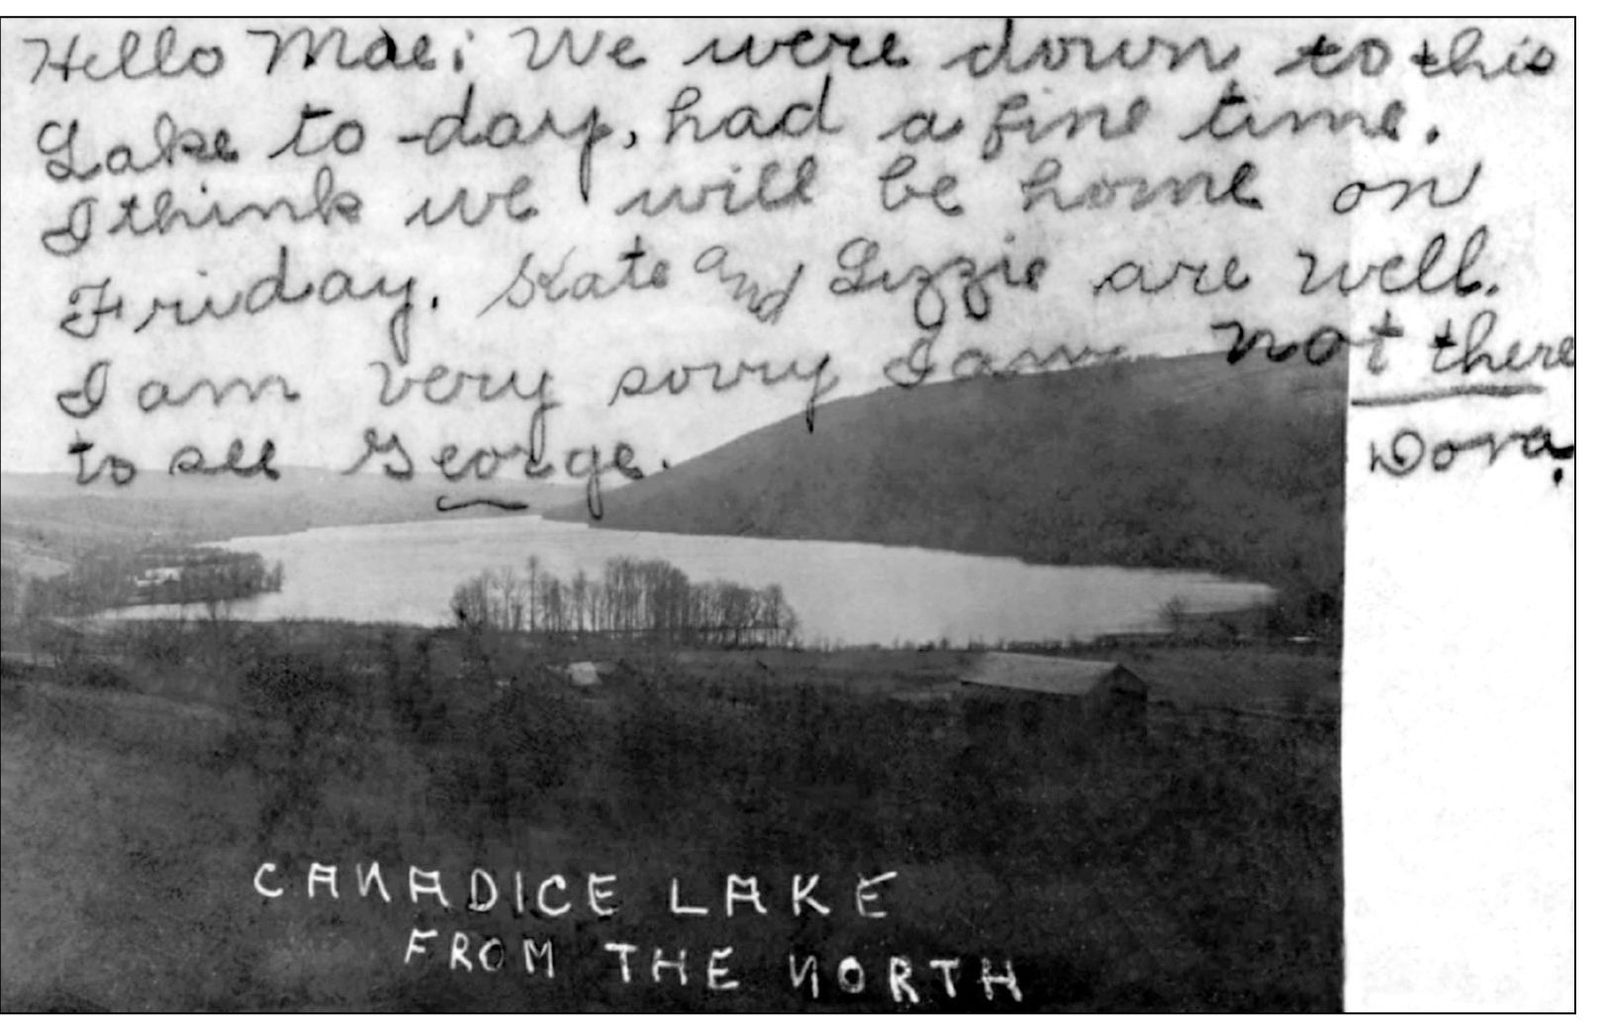 Hello Mae; We were down to this
Lake to-day, had a fine time.
I think we will be home on
Friday. Kate and Lizzie are well.
I am very sorry I am not there
to see George.
Dora.
CANADICE LAKE
FROM THE NORTH